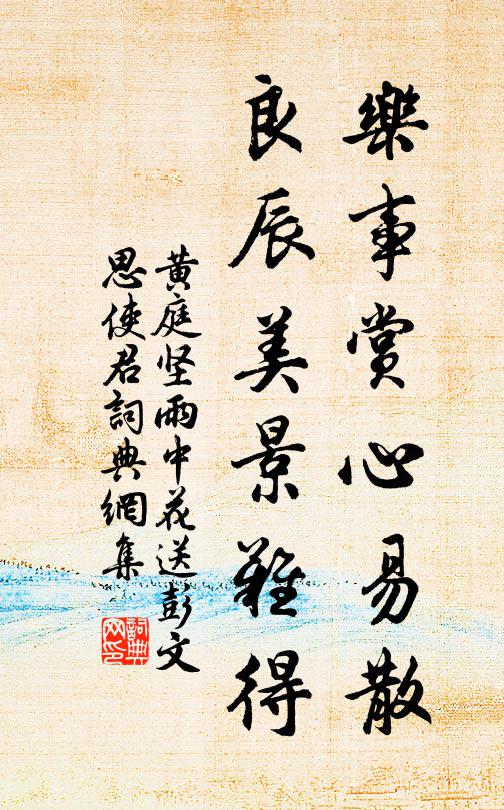 樂事賞心易散
良辰美景難得
黄庭坚雨中花送彭文
思使君詞典網集
詞典網印